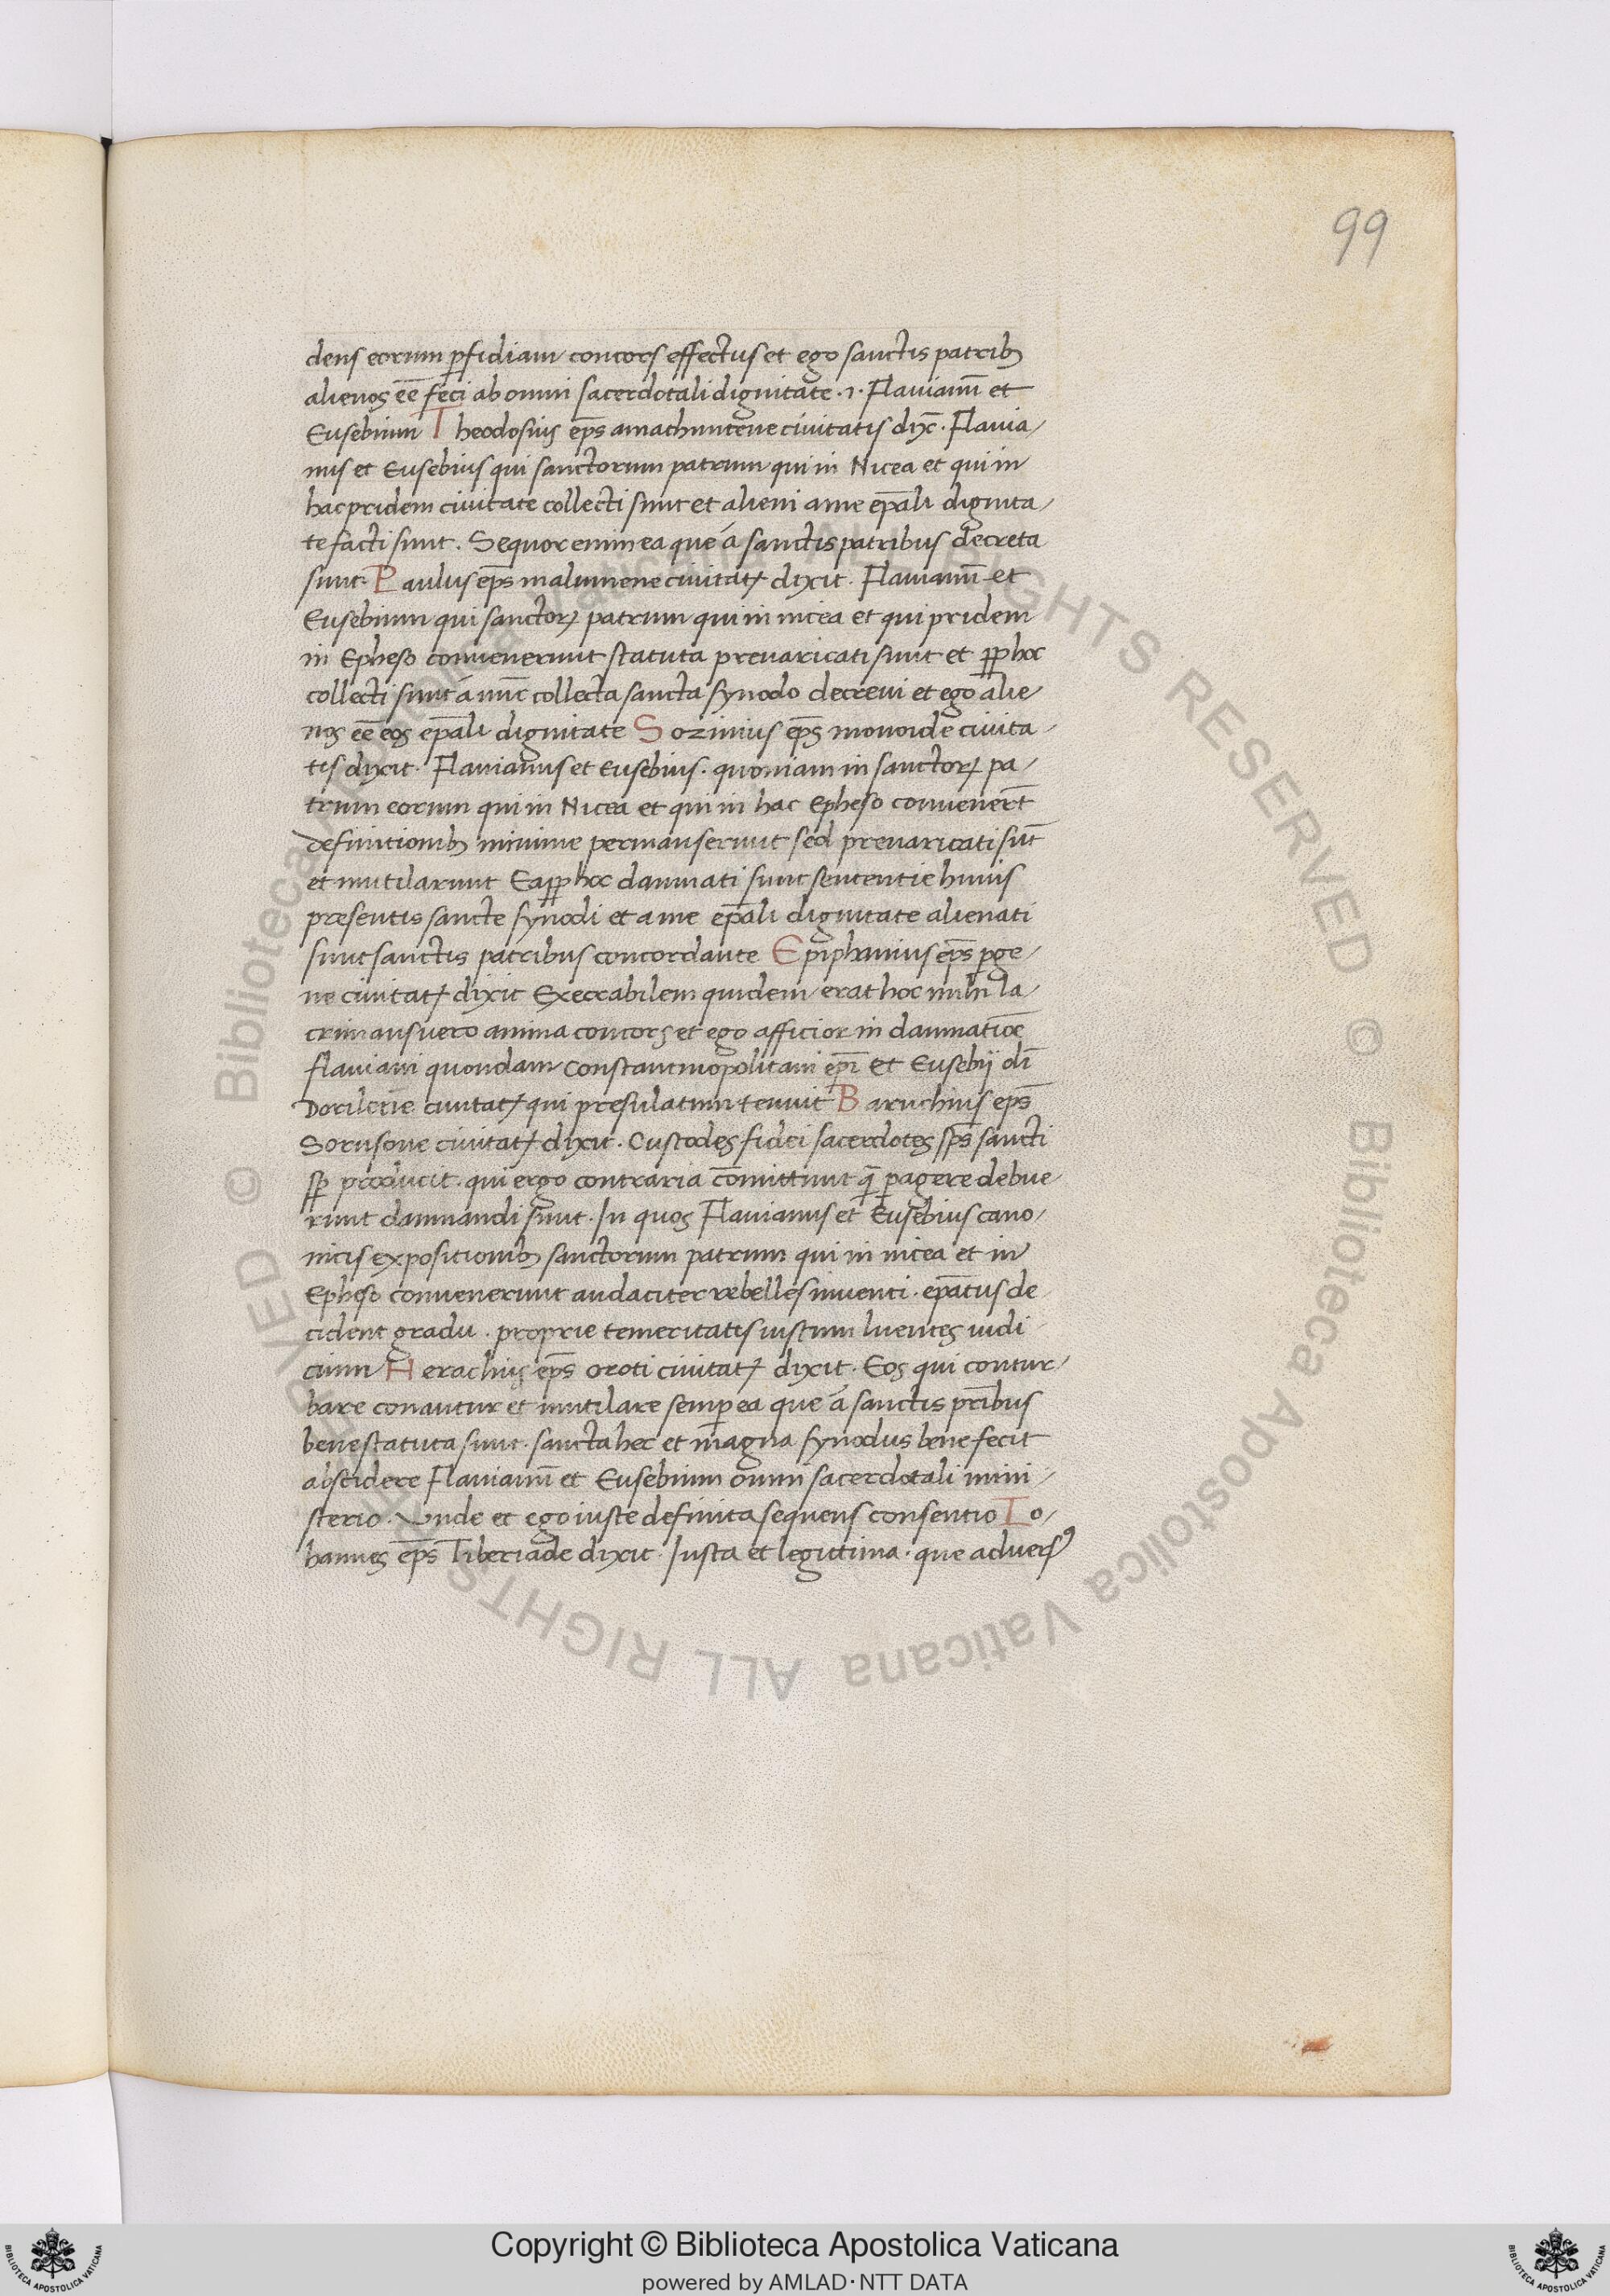 99
dens eorum ꝑfidiam concors effectus et ego sanctis patribꝫ
alienos eē feci ab omni sacerdotali dignitate .1. Flauianū et
Eusebium Theodosius ep̄s amachuntene ciuitatis dix̄. Flauia/
nus et Eusebius qui sanctorum patrum qui in Nicea et qui in
hac pridem ciuitate collecti sunt et alieni a me ep̄ali dignita/
te facti sunt. Sequor enim ea que á sanctis patribus decreta
sunt. Paulus ep̄s malumene ciuitatꝭ dixit. Flauianū et
Eusebium qui sanctoꝝ patrum qui in nicea et qui pridem
in Epheso conuenerunt statuta preuaricati sunt et ꝓphoc
collecti sunt á nūc collecta sancta synodo decreui et ego alie
nos eē eos ep̄ali dignitate Sozimius ep̄s monoide ciuita/
tis dixit. Flauianus et Eusebius. quoniam in sanctoꝝ pa/
trum eorum qui in Nicea et qui in hac Epheso conuenert̄
definitionibꝫ minime permanserunt sed preuaricati sūt
et mutilarunt Eaꝓphoc damnati sunt sententie huius
præsentis sancte synodi et a me ep̄ali dignitate alienati
sunt sanctis patribus concordante Epiphanius ep̄s ꝑge/
ne ciuitatꝭ dixit Execrabilem quidem erat hoc mihi la/
crimans uero anima concors et ego afficior in damnatiōe
flauiani quondam Constantinopolitani ep̄i et Eusebij dī
Dorilene ciuitatꝭ qui presulatum tenuit Baruchius ep̄s
Sorusone ciuitatꝭ dixit. Custodes fidei sacerdotes sp̄s sancti
sꝑ producit. qui ergo contraria cōmittunt q̄ ꝑagere debue/
runt damnandi sunt. In quos Flauianus et Eusebius cano/
nicis expositionibꝫ sanctorum patrum qui in nicea et in
Epheso conuenerunt audaciter rebelles inuenti. ep̄atus de
cident gradu. proprie temeritatis iustum luentes iudi
cium Heraclius ep̄s oroti ciuitatꝭ dixit. Eos qui contur/
bare conantur et mutilare semꝑ ea que á sanctis pr̄ibus
bene statuta sunt. sancta hec et magna synodus bene fecit
abscidere Flauianū et Eusebium omni sacerdotali mini/
sterio. Unde et ego iuste definita sequens consentio Io/
hannes ep̄s Tiberiade dixit. Iusta et legitima. que aduersꝰ
© Biblioteca Apostolica Vaticana ALL RIGHTS RESERVED © Biblioteca Apostolica Vaticana ALL RIGHTS RESERVED
Copyright © Biblioteca Apostolica Vaticana
powered by AMLAD·NTT DATA
BIBLIOTECA APOSTOLICA VATICANA
BIBLIOTECA APOSTOLICA VATICANA